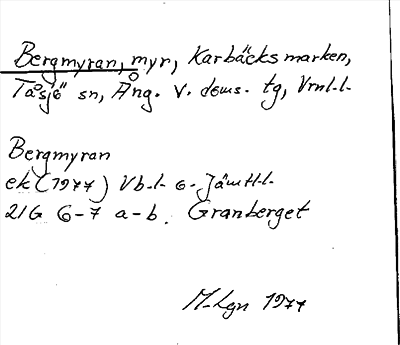 Bergmyran, myr, Karbäcksmarken,
Tåsjö sn, Ång. v. doms. tg, Vrnl.l.
Bergmyran
ek (1977) Vb.l. o. Jämtl.l.
21G 6-7 a-b. Granberget
M-Lgn 1977